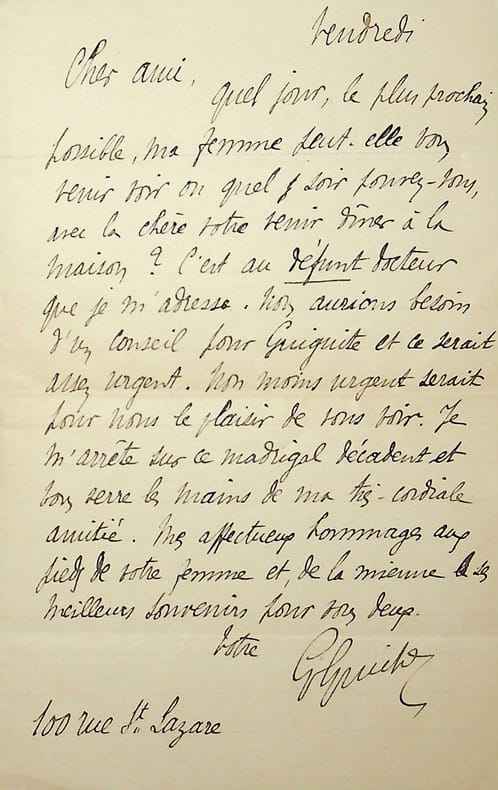 Vendredi
Cher ami,
quel jour, le plus prochain
possible, ma femme peut-elle vous
venir voir ou quel soir pouvez-vous,
avec la chère votre venir dîner à la
maison ? C'est au défunt docteur
que je m'adresse. Nous aurions besoin
d'un conseil pour Guiguite et ce serait
assez urgent. Non moins urgent serait
pour nous le plaisir de vous voir. Je
m'arrête sur ce madrigal décadent et
vous serre les mains de ma très-cordiale
amitié. Mes affectueux hommages aux
pieds de votre femme et, de la mienne ses
meilleurs souvenirs pour vous deux.
Votre
100 rue St. Lazare